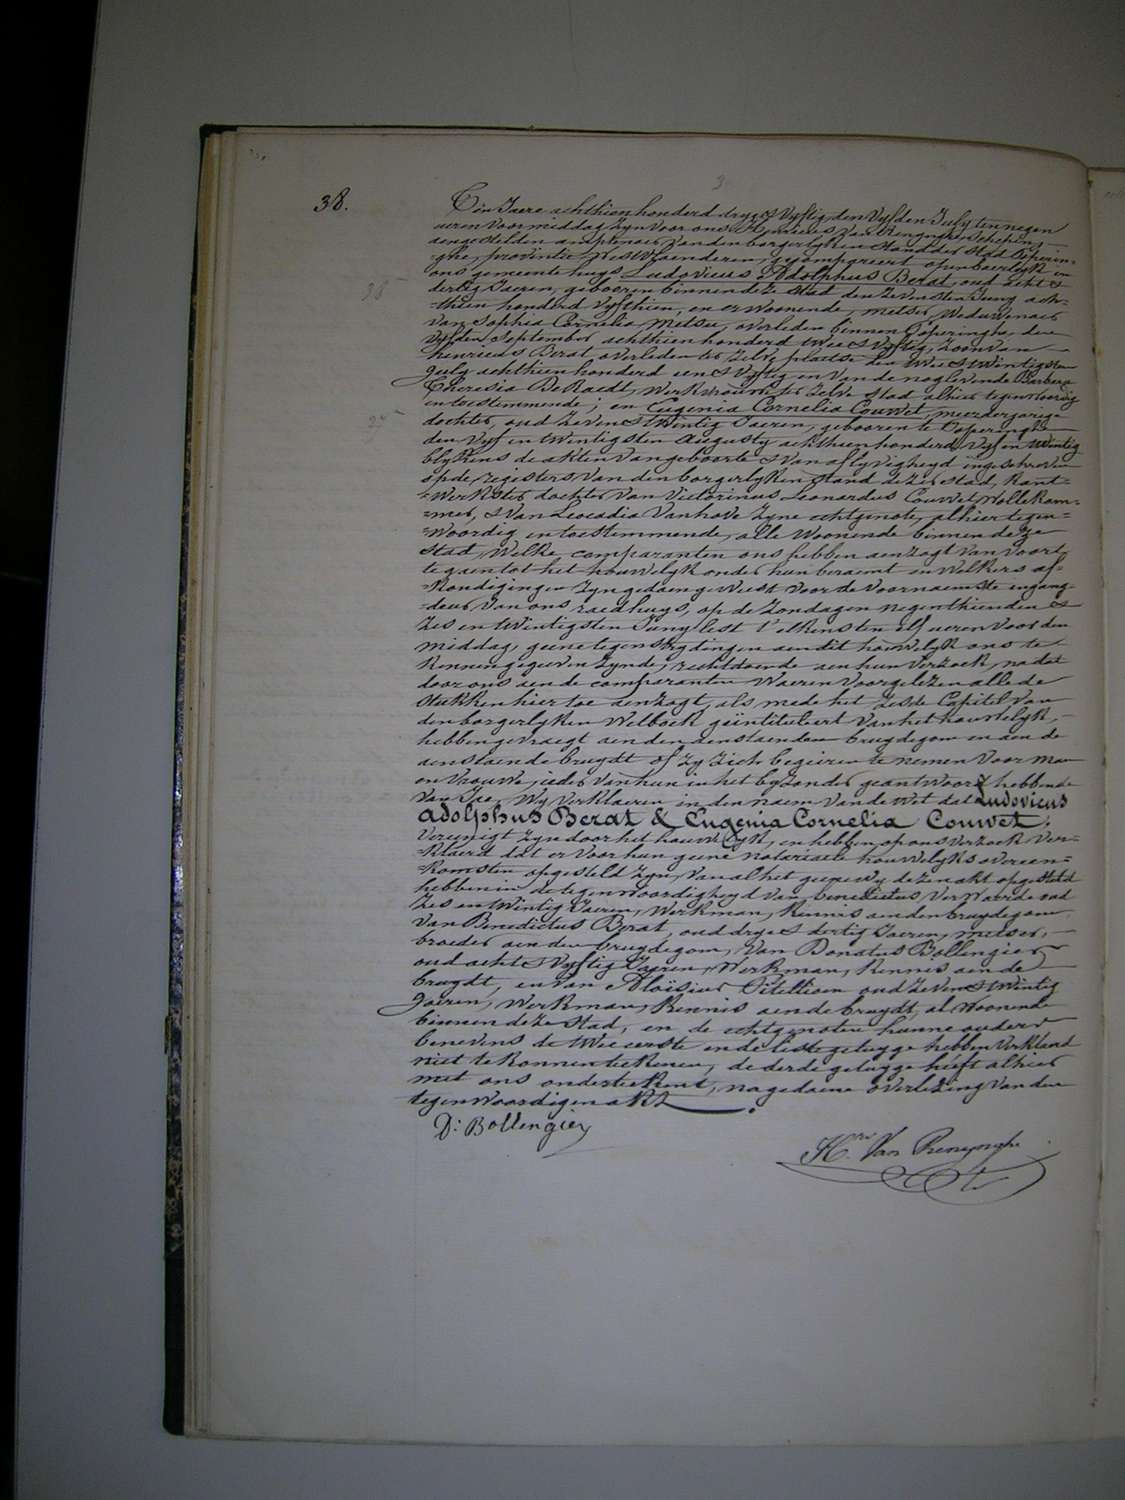 38.
Ten Jaere achthien honderd dry & Vyftig, den Vyfden July ten negen
ueren voormiddag zyn voor ons Henricus Van Renynghe schepen,
aengestelden amptenaer van den borgerlyken stand der stad Poperin-
ghe, provintie Westvlaenderen, gecompareert openbaerlyk in
ons gemeente huys Ludovicus Adolphus Berat, oud acht &
dertig Jaeren, geboren binnen deze stad den zevensten Juny ach-
=thien honderd vyfthien, en er woonende, metser, Weduwenaer
Van Sophia Cornelia Metseu, overleden binnen Poperinghe, den
vyfden September achthien honderd twee & vyftig, zoon van
henricus Berat overleden ter zelve plaetse den twee & twintigsten
July achthien honderd een & vyftig en van de nog levende Barbara
Theresia De Raedt, Werkvrouw ter zelve stad alhier tegenwoordig
en toestemmende; en Eugenia Cornelia Couwet, meerderjarige
dochter, oud zeven & twintig Jaeren, gebooren te Poperinghe
den vyf en twintigsten Augusty achthien honderd vyf en twintig
blykens de akten van geboorte & van aflyvigheyd ingeschreven
op de registers van den borgerlyken stand dezer stad, kant-
=werkster dochter van Victorinus Leonardus Couwet, Wollekam-
=mer, & Van Leocadia Vanhove zyne echtgenote, alhier tegen=
=woordig en toestemmende, alle woonende binnen deze
stad, Welke comparanten ons hebben aenzogt van voort
te gaen tot het houwelyk onder hun beraemt en welkers af-
=kondigingen zyn gedaen geweest voor de voornaemste ingang-
=deur van ons raedhuys, op de zondagen negenthienden &
zes en twintigsten Juny lest t'elkensten elf ueren voor den
middag, geene tegenstrydingen aen dit houwelyk ons te
kennen gegeven zynde, rechtdoende aen hun verzoek, na dat
door ons aen de comparanten waeren voorgelezen alle de
stukken hier toe aenzogt, als mede het zesde Capitel van
den borgerlyken Wetboek geïntituleert van het houwelyk,
hebben gevraegt aen den aenstaenden bruydegom en aen de
aenstaende bruydt of zy zich begeeren te nemen voor man
en vrouwe, ieder van hun in het byzonder geantwoord hebbende
van Jae, Wy verklaeren in den naem van de wet dat Ludovicus
Adolphus Berat & Eugenia Cornelia Couwet,
vereenigt zyn door het houwelyk, en hebben, op ons verzoek ver-
=klaerd dat er voor hun geene notarieele houwelyks overeen=
=komsten opgesteld zyn, van al het geene wy dezen akt opgesteld
hebben in de tegenwoordigheyd van Benedictus Verwaerde oud
zes en twintig Jaeren, Werkman, kennis aen den bruydegom,
van Benedictus Berat, oud drye & dertig Jaeren, metser,
broeder aen den bruydegom, van Donatus Bollengier
oud acht & vyftig Jaeren, Werkman, kennis aen de
bruydt, en van Aloisius Titellion oud zeven & twintig
Jaeren, Werkman, kennis aen de bruydt, al woonende
binnen deze stad, en de echtgenoten hunne ouders
benevens de twee eerste en de leste getuyge hebben verklaerd
niet te konnen teekenen, de derde getuyge heeft alhier
met ons onderteekent, na gedaene overlezing van den
tegenwoordigen akt.
D: Bollengier
H.ri Van Renynghe